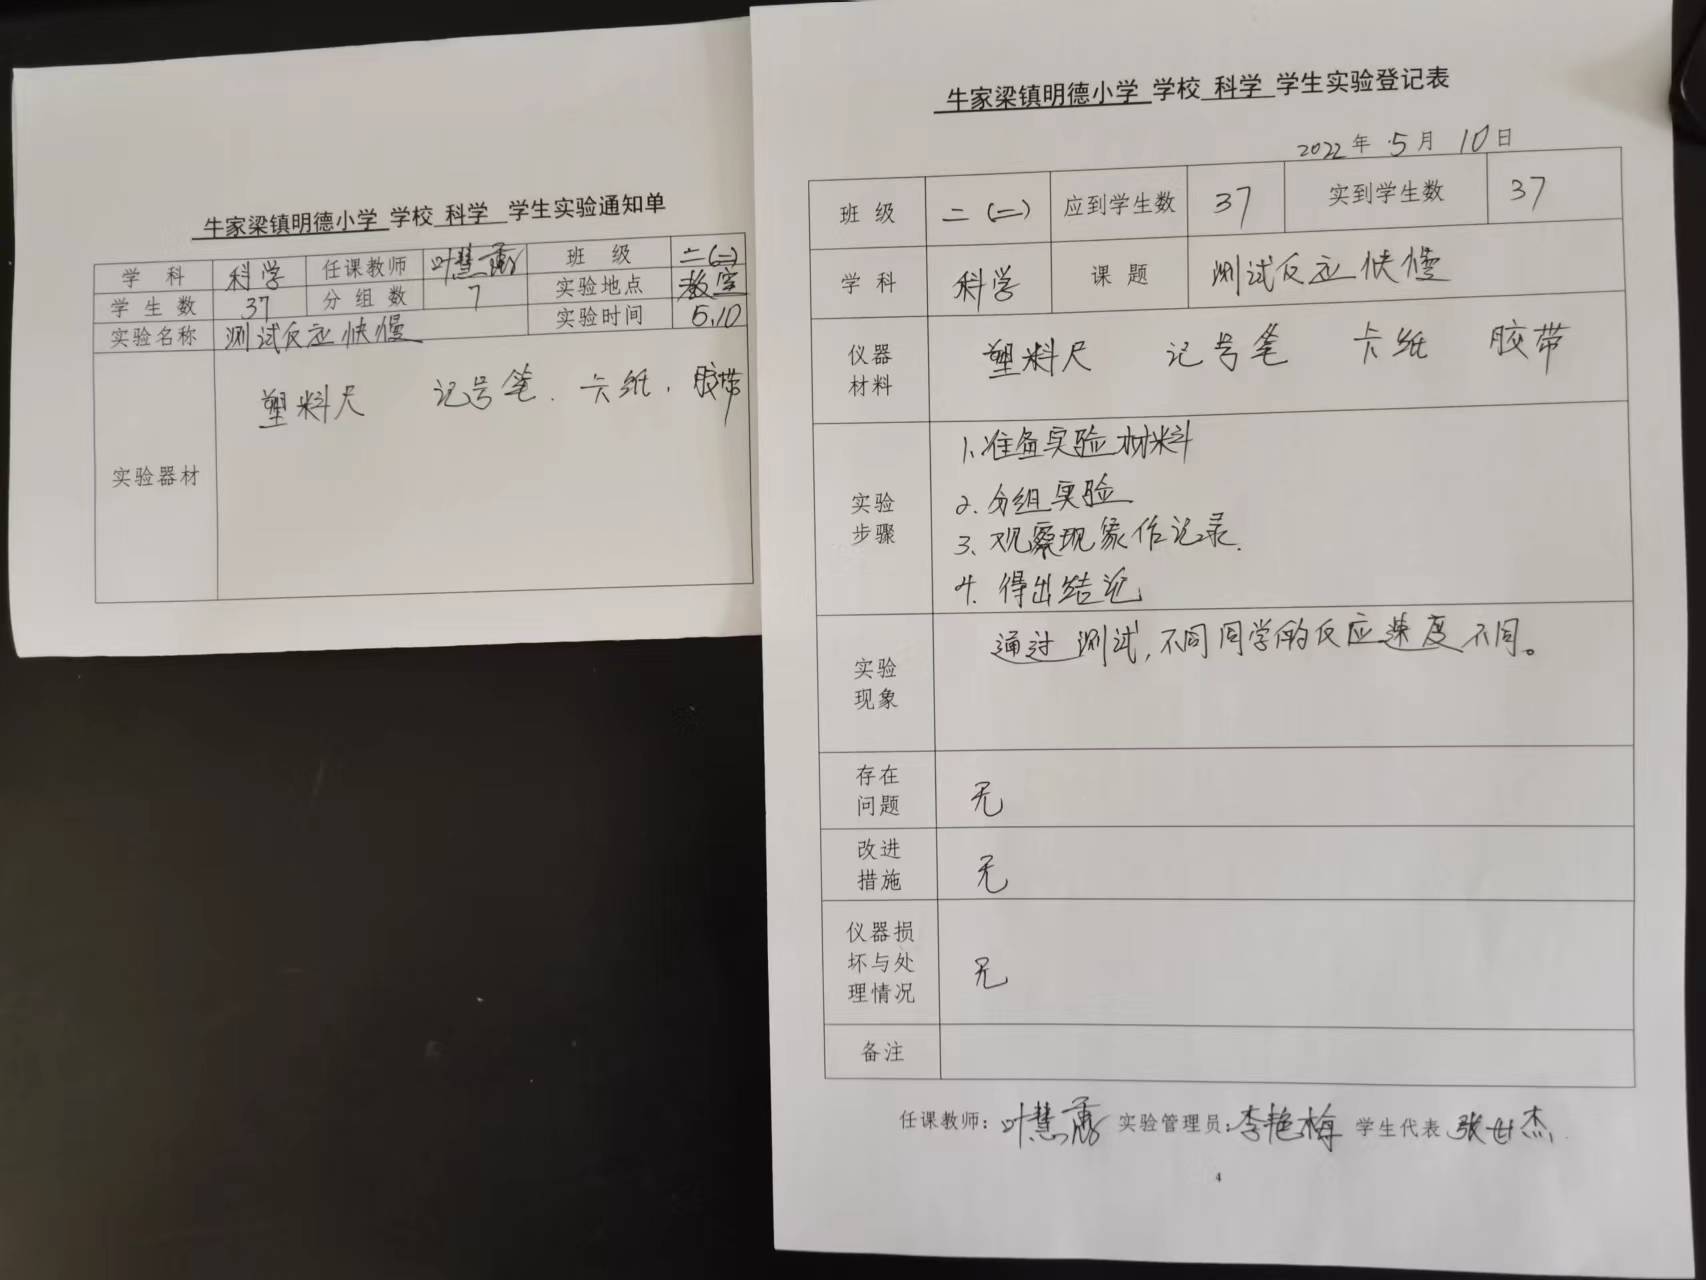 牛家梁镇明德小学 学校 科学 学生实验通知单
学 科 科学 任课教师 叶慧 班 级 二(二)
学 生 数 37 分 组 数 7 实验地点 教室
实验名称 测试反应快慢 实验时间 5.10
实验器材 塑料尺 记号笔. 卡纸. 胶带
牛家梁镇明德小学 学校 科学 学生实验登记表
2022 年 5 月 10 日
班 级 二(二) 应到学生数 37 实到学生数 37
学 科 科学 课 题 测试反应快慢
仪器
材料
塑料尺 记号笔 卡纸 胶带
实验
步骤
1.准备实验材料
2.分组实验
3、观察现象作记录.
4.得出结论
实验
现象
通过测试,不同同学的反应速度不同。
存在
问题
无
改进
措施
无
仪器损
坏与处
理情况
无
备注
任课教师: 叶慧 实验管理员: 李艳梅 学生代表 张世杰
4